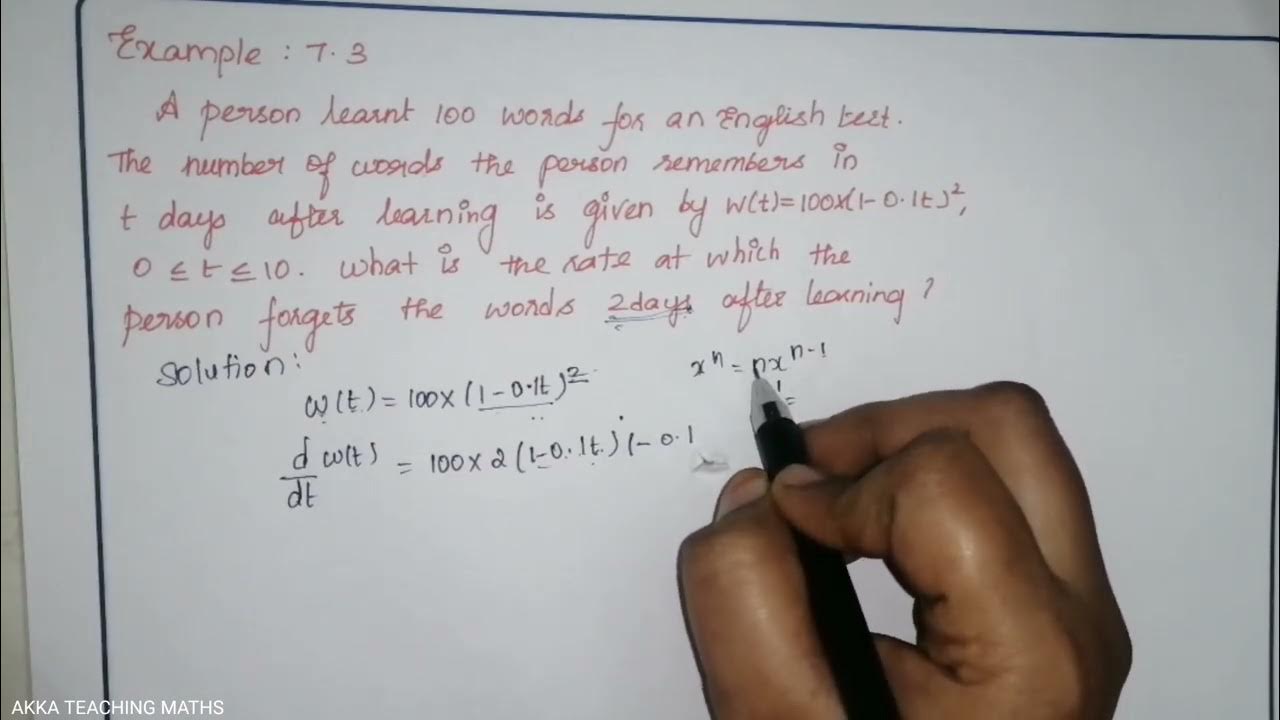 Example : 7.3
A person learnt 100 words for an English test.
The number of words the person remembers in
t days after learning is given by W(t)=100×(1-0.1t)²,
0 ≤ t ≤ 10. What is the rate at which the
person forgets the words 2days after learning ?
Solution:
w(t) = 100× (1-0.1t)²
xⁿ = nxⁿ⁻¹
d/dt w(t) = 100×2 (1-0.1t) (-0.1
AKKA TEACHING MATHS